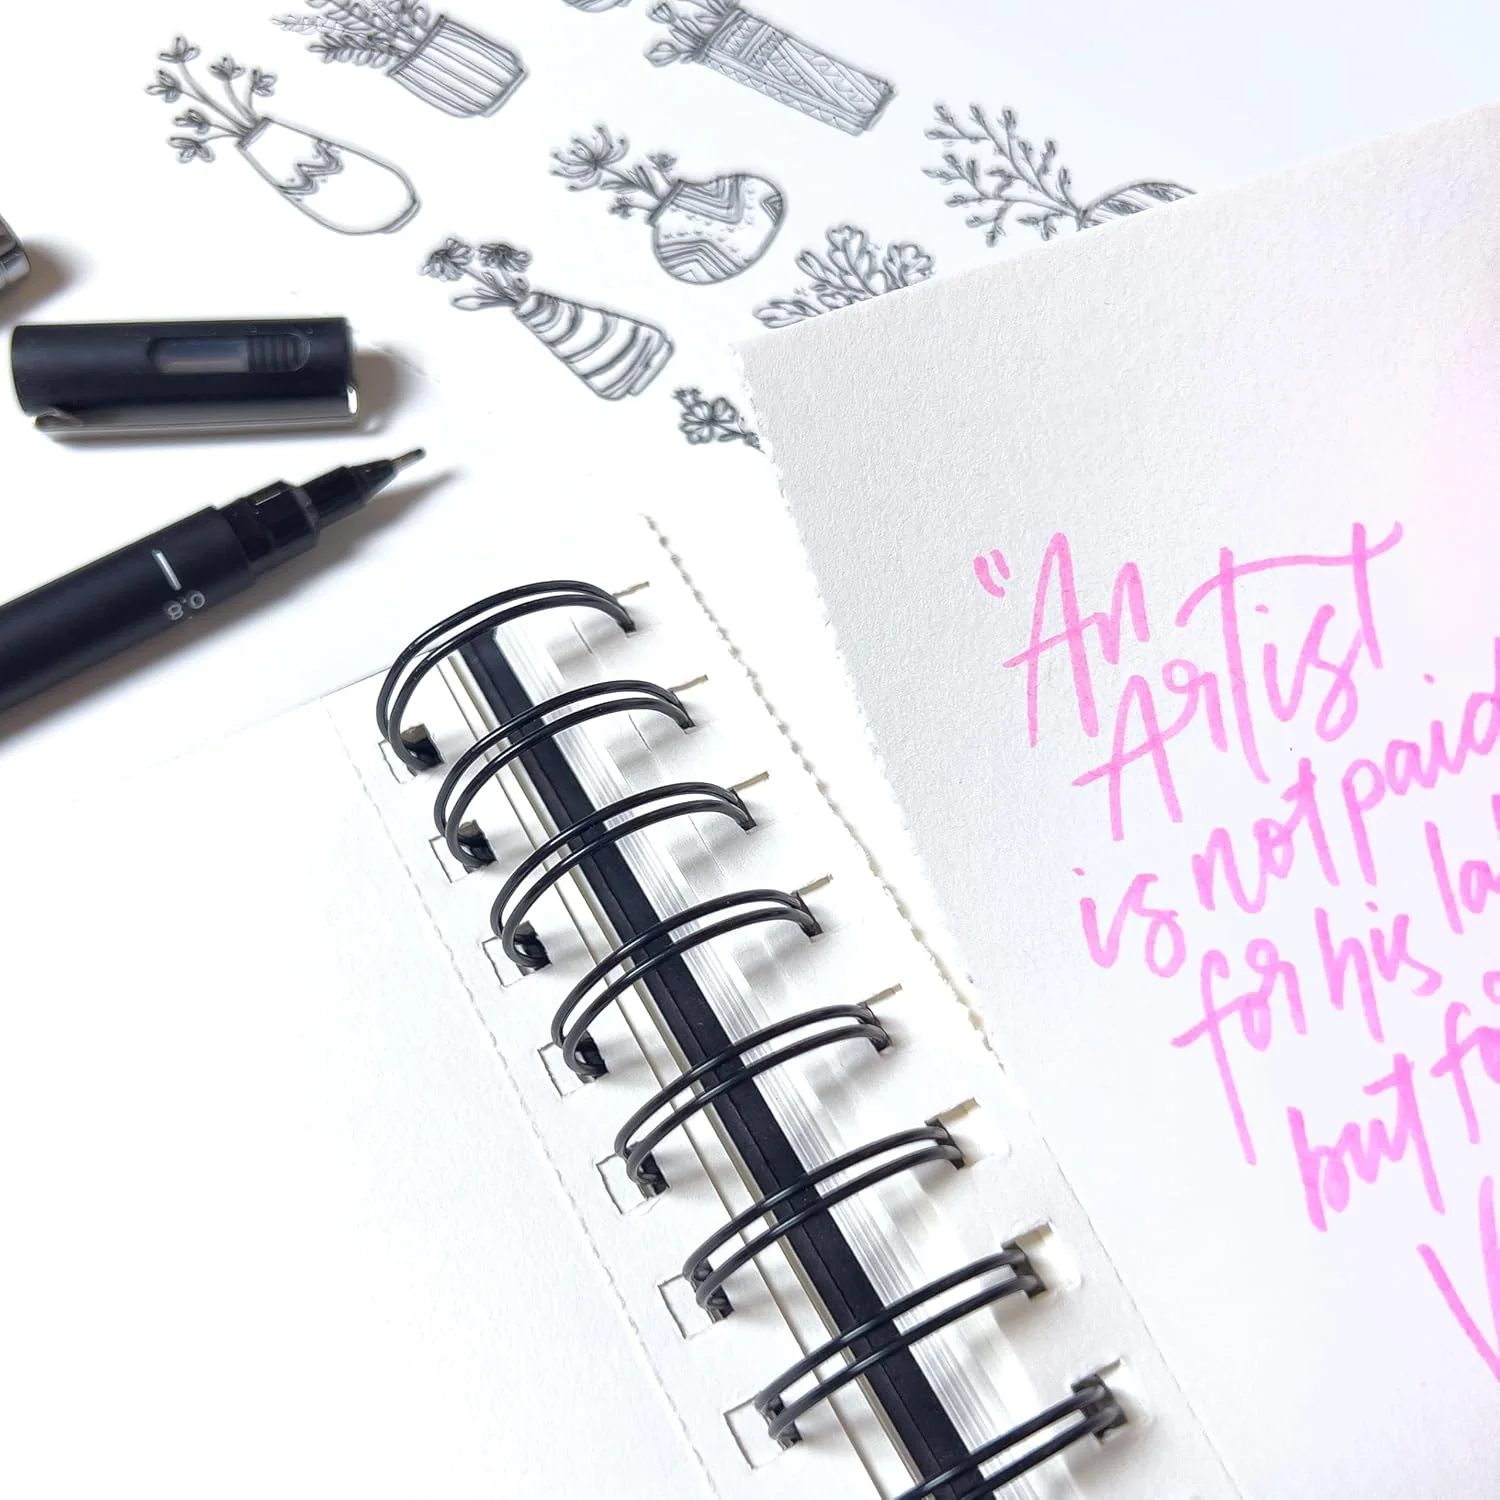 "An
Artist
is not paid
for his
but
0.8